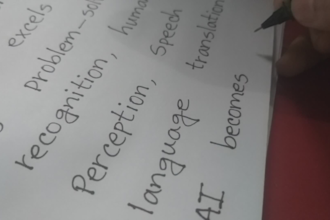 excels
problem-sol
recognition, huma
Perception, speech
language translation
AI becomes